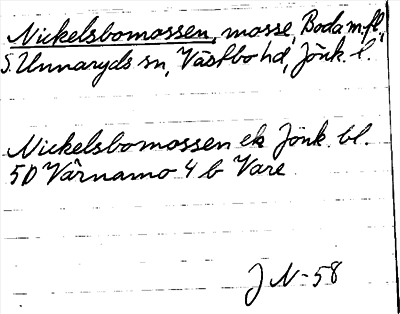 Nickelsbomossen, mosse, Boda m.fl.,
S. Unnaryds sn, Västbo hd, Jönk. l.
Nickelsbomossen ek Jönk. bl.
5D Värnamo 4 b Vare
J N-58